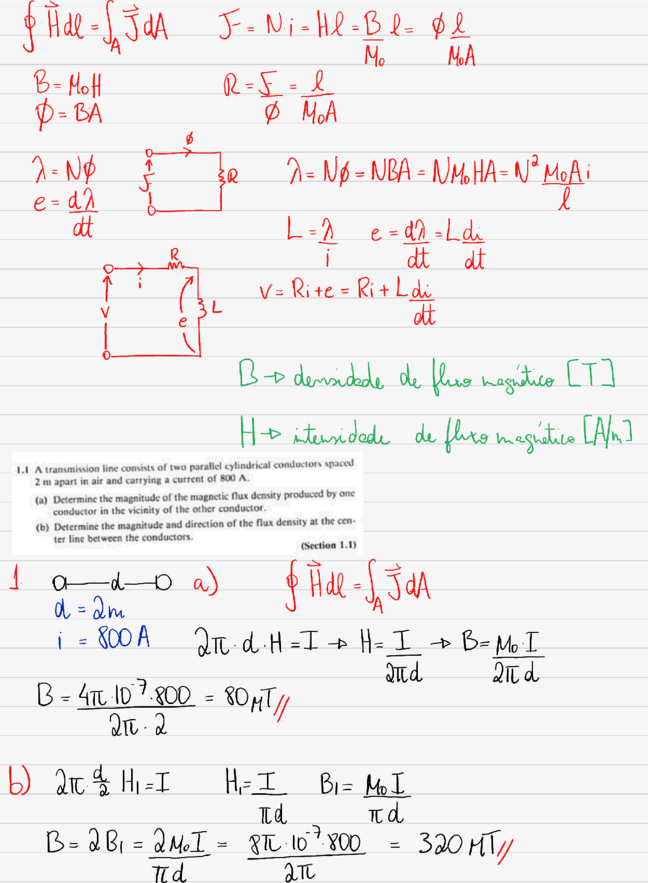 ∮H⃗dl = ∫_A J⃗dA    F = Ni = Hl = B/M₀ l = ϕ l/M₀A
B = M₀H    R = F/ϕ = l/M₀A
ϕ = BA
λ = Nϕ    F    ϕ    R    λ = Nϕ = NBA = NM₀HA = N² M₀A/l i
e = dλ/dt    L = λ/i    e = dλ/dt = L di/dt
V    i    R    e    L    v = Ri + e = Ri + L di/dt
B → densidade de fluxo magnético [T]
H → intensidade de fluxo magnético [A/m]
1.1 A transmission line consists of two parallel cylindrical conductors spaced
2 m apart in air and carrying a current of 800 A.
(a) Determine the magnitude of the magnetic flux density produced by one
conductor in the vicinity of the other conductor.
(b) Determine the magnitude and direction of the flux density at the cen-
ter line between the conductors.
(Section 1.1)
1    d    a)    ∮H⃗dl = ∫_A J⃗dA
d = 2m
i = 800A    2π·d·H = I → H = I/2πd → B = M₀·I/2πd
B = 4π·10⁻⁷·800/2π·2 = 80MT//
b) 2π d/2 H₁ = I    H₁ = I/πd    B₁ = M₀I/πd
B = 2B₁ = 2M₀I/πd = 8π·10⁻⁷·800/2π = 320MT//